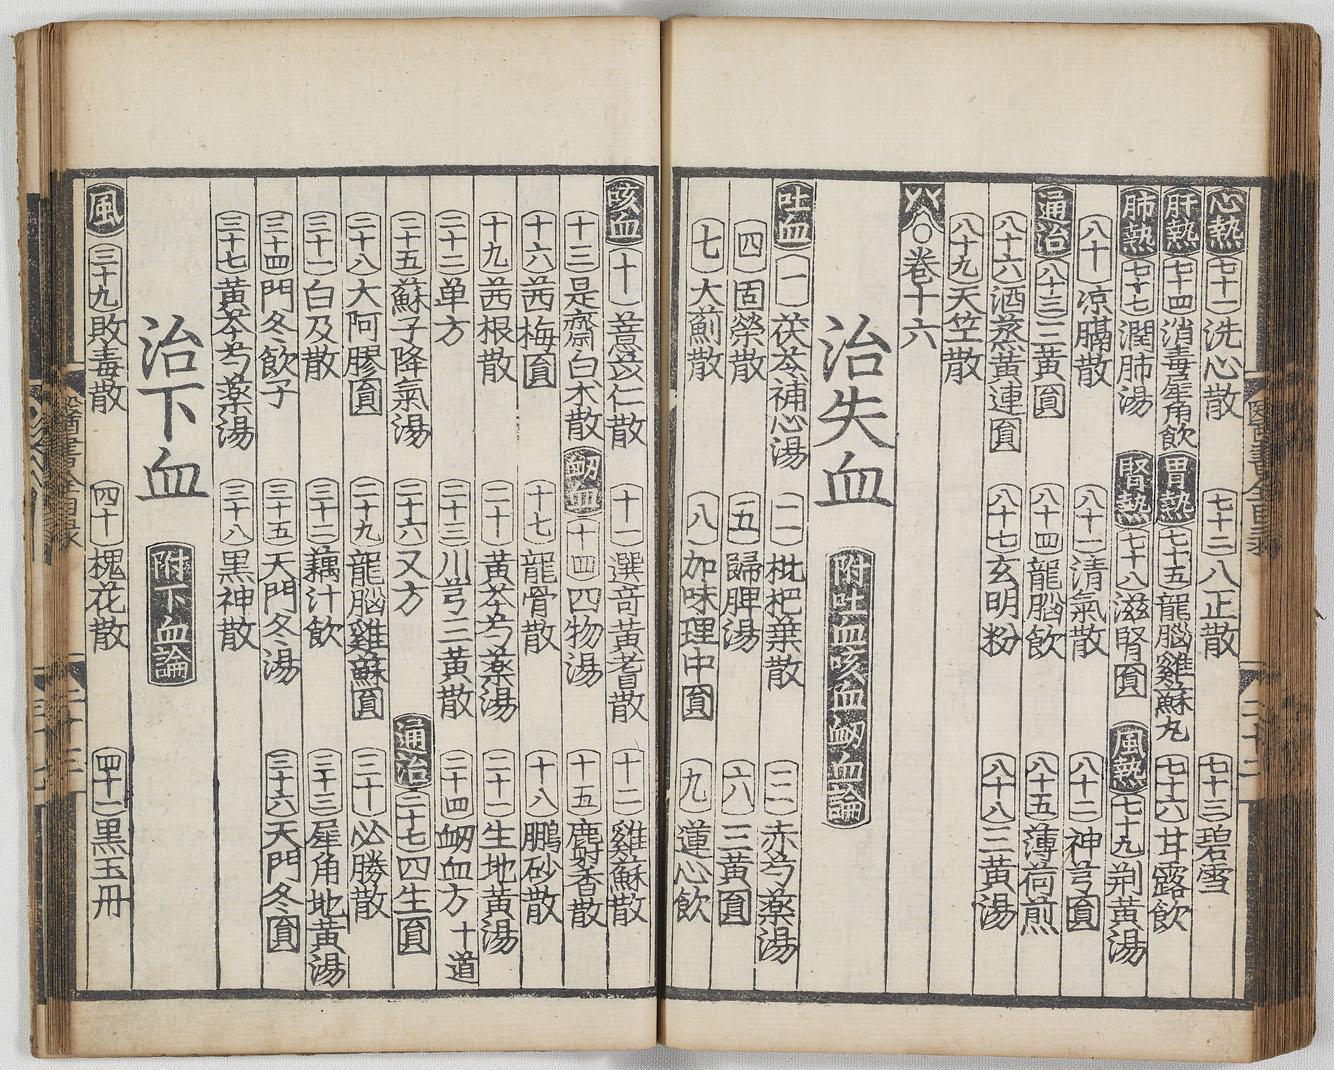 心熱 七十一 洗心散 七十二 八正散 七十三 碧雪
肝熱 七十四 消毒犀角飲 胃熱 七十五 龍腦雞蘇丸 七十六 甘露飲
肺熱 七十七 潤肺湯 腎熱 七十八 滋腎圓 風熱 七十九 荆黃湯
八十 凉膈散 八十一 清氣散 八十二 神芎圓
通治 八十三 三黃圓 八十四 龍腦飲 八十五 薄荷煎
八十六 酒蒸黃連圓 八十七 玄明粉 八十八 三黃湯
八十九 天竺散
○卷十六
治失血 附吐血咳血衂血論
吐血 一 茯苓補心湯 二 枇杷葉散 三 赤芍藥湯
四 固榮散 五 歸脾湯 六 三黃圓
七 大薊散 八 加味理中圓 九 蓮心飲
咳血 十 薏苡仁散 十一 選奇黃耆散 十二 雞蘇散
十三 是齋白朮散 衂血 十四 四物湯 十五 麝香散
十六 茜梅圓 十七 龍骨散 十八 鵬砂散
十九 茜根散 二十 黃芩芍藥湯 二十一 生地黃湯
二十二 单方 二十三 川芎三黃散 二十四 衂血方 十道
二十五 蘇子降氣湯 二十六 又方 通治 二十七 四生圓
二十八 大阿膠圓 二十九 龍腦雞蘇圓 三十 必勝散
三十一 白及散 三十二 藕汁飲 三十三 犀角地黃湯
三十四 門冬飲子 三十五 天門冬湯 三十六 天門冬圓
三十七 黃芩芍藥湯 三十八 黑神散
治下血 附下血論
風 三十九 敗毒散 四十 槐花散 四十一 黑玉冊